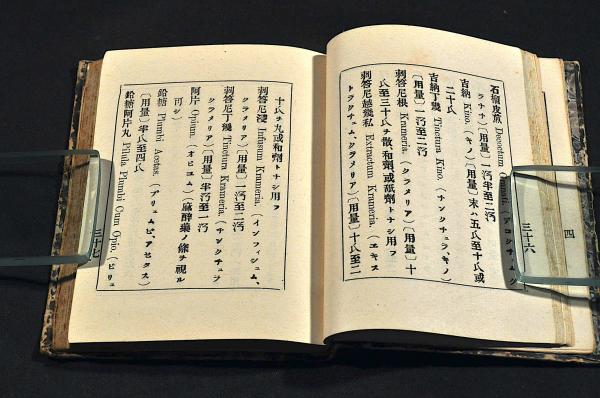 石榴皮煎 Decoctum
ラナチ)〔用量〕一汚半至二汚
吉納 Kino. (キノ)〔用量〕末ハ五氏至十氏或
二十氏
吉納丁幾 Tinctura Kino. (チンクチュラ、キノ)
〔用量〕一汚至二汚
剌答尼根 Krameria. (クラメリア)〔用量〕十
氏至三十氏ヲ散和劑或舐劑トナシ用フ
剌答尼越幾私 Extractum Krameria. (エキス
トラクチュム、クラメリア)〔用量〕十氏至二
四
三十六
十氏ヲ丸或和劑トナシ用フ
剌答尼浸 Infusum Krameria. (インフィジュム、
クラメリア)〔用量〕一汚至二汚
剌答尼丁幾 Tinctura Krameria. (チンクチュラ
クラメリア)〔用量〕半汚至一汚
阿片 Opium. (オピユム)(麻醉藥ノ條ヲ視ル
可シ)
鉛糖 Plumbi Acetas. (プリュムビ、アセタス)
〔用量〕半氏至四氏
鉛糖阿片丸 Pilula Plumbi Cum Opio. (ピリュ
三十七